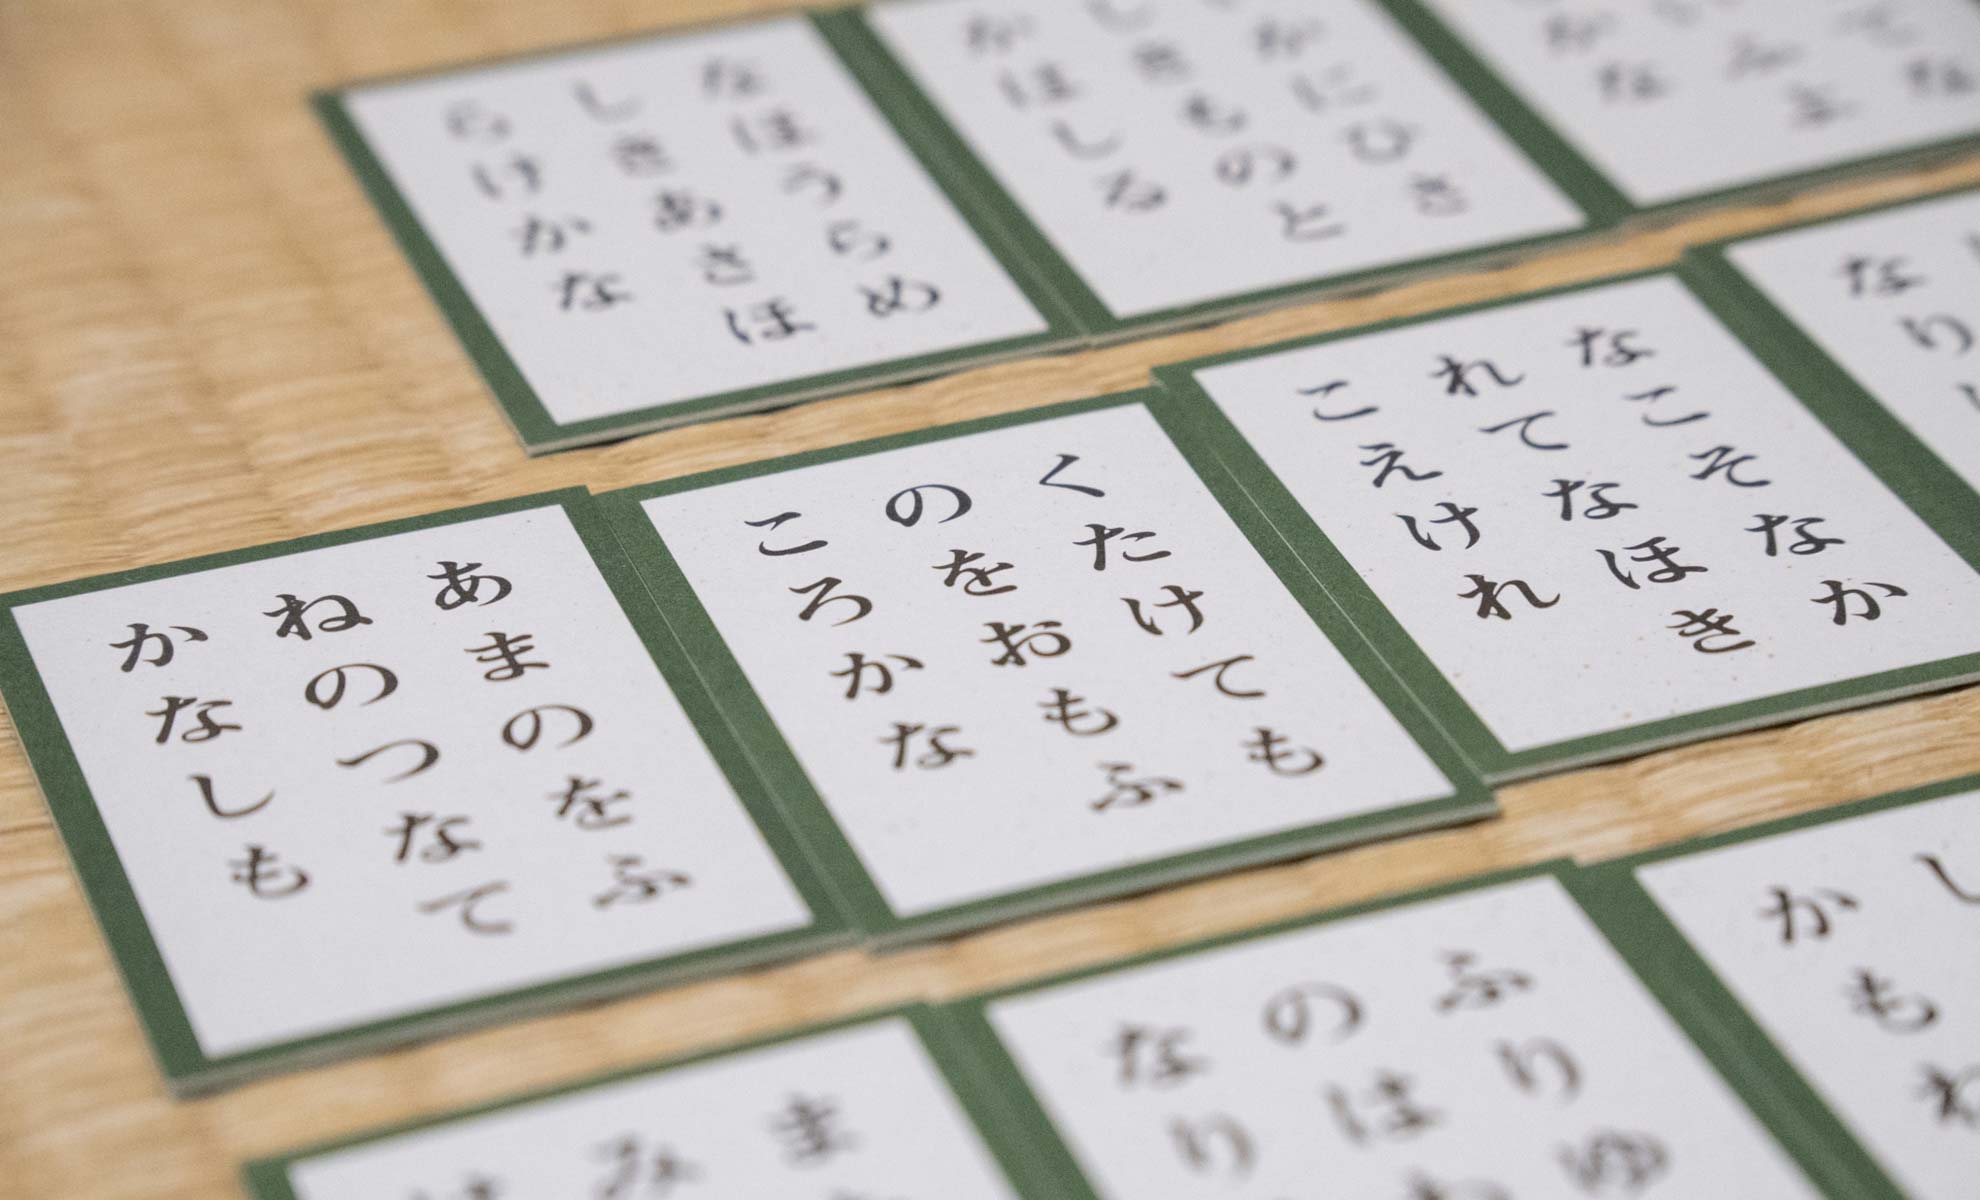 なほうらめ
しきあさほ
らけかな
かにひさ
しきものと
かはしる
てな
いふよ
かな
あまのをふ
ねのつなて
かなしも
くたけても
のをおもふ
ころかな
なこそなか
れてなほき
こえけれ
なり
ま
み
ふりゆ
のは
なり
し
かもね